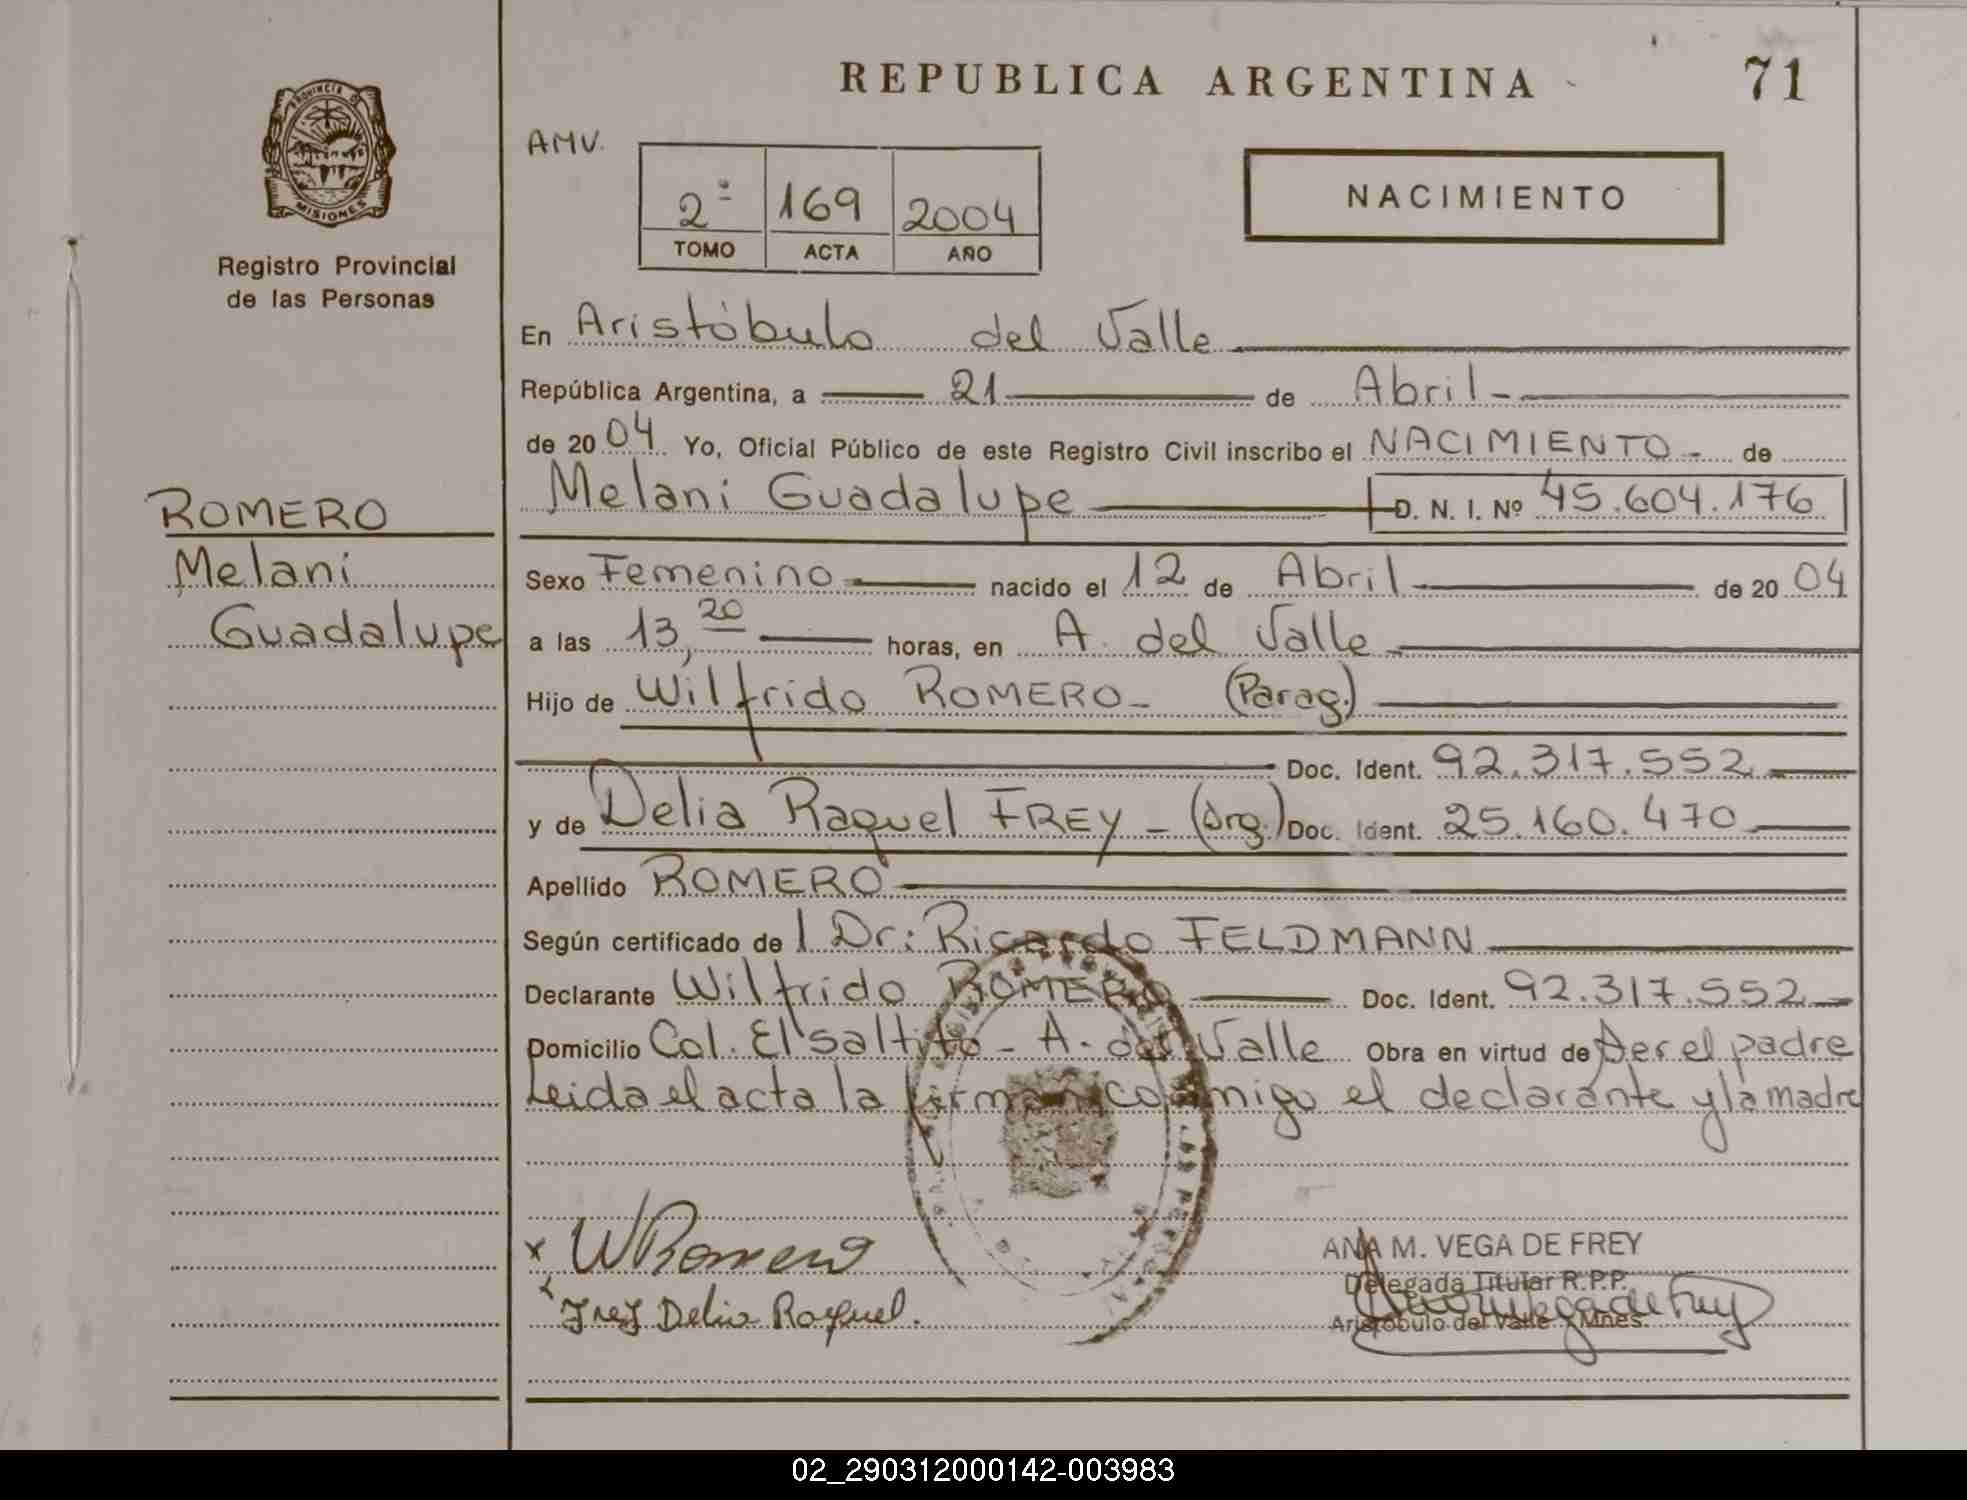 REPUBLICA ARGENTINA
71
PROVINCIA DE
MISIONES
Registro Provincial
de las Personas
AMV.
2º 169 2004
TOMO ACTA AÑO
NACIMIENTO
En Aristóbulo del Valle
República Argentina, a 21 de Abril -
de 2004 Yo, Oficial Público de este Registro Civil inscribo el NACIMIENTO - de
Melani Guadalupe D. N. I. Nº 45.604.176
ROMERO
Melani
Guadalupe
Sexo Femenino nacido el 12 de Abril de 2004
a las 13,20 horas, en A. del Valle
Hijo de Wilfrido ROMERO - (Parag.)
Doc. Ident. 92.317.552
y de Delia Raquel FREY - (Arg.) Doc. Ident. 25.160.470
Apellido ROMERO
Según certificado de Dr: Ricardo FELDMANN
Declarante Wilfrido ROMERO Doc. Ident. 92.317.552
Domicilio Col. El saltito - A. del Valle Obra en virtud de ser el padre
Leida el acta la firman conmigo el declarante y la madre
x WRomero
x Frey Delia Raquel.
ANA M. VEGA DE FREY
Delegada Titular R.P.P.
Aristóbulo del Valle - Mnes.
02_290312000142-003983